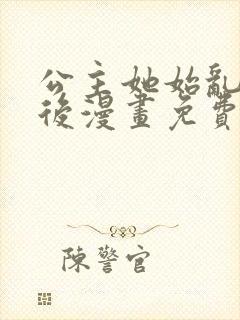 公主她始亂
後漫畫免費
陳警官